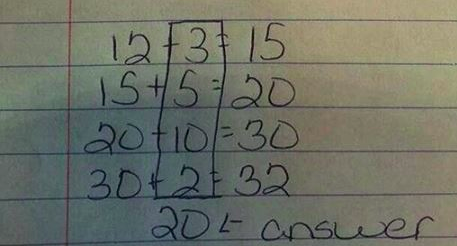 12 + 3 = 15
15 + 5 = 20
20 + 10 = 30
30 + 2 = 32
20 ← answer